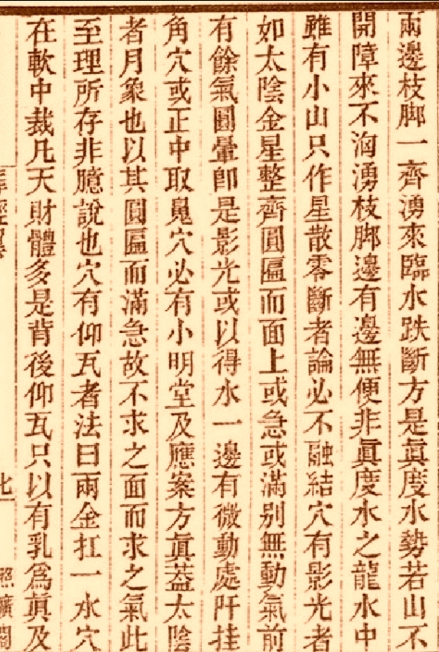 兩邊枝脚一齊湧來臨水跌斷方是眞度水勢若山不
開障來不洶湧枝脚邊有邊無便非眞度水之龍水中
雖有小山只作星散零斷者論必不融結穴有影光者
如太陰金星整齊圓匾而面上或急或滿別無動氣前
有餘氣圓暈卽是影光或以得水一邊有微動處阡挂
角穴或正中取鬼穴必有小明堂及應案方眞葢太陰
者月象也以其圓匾而滿急故不求之面而求之氣此
至理所存非臆說也穴有仰瓦者法曰兩金扛一水穴
在軟中裁凡天財體多是背後仰瓦只以有乳爲眞及